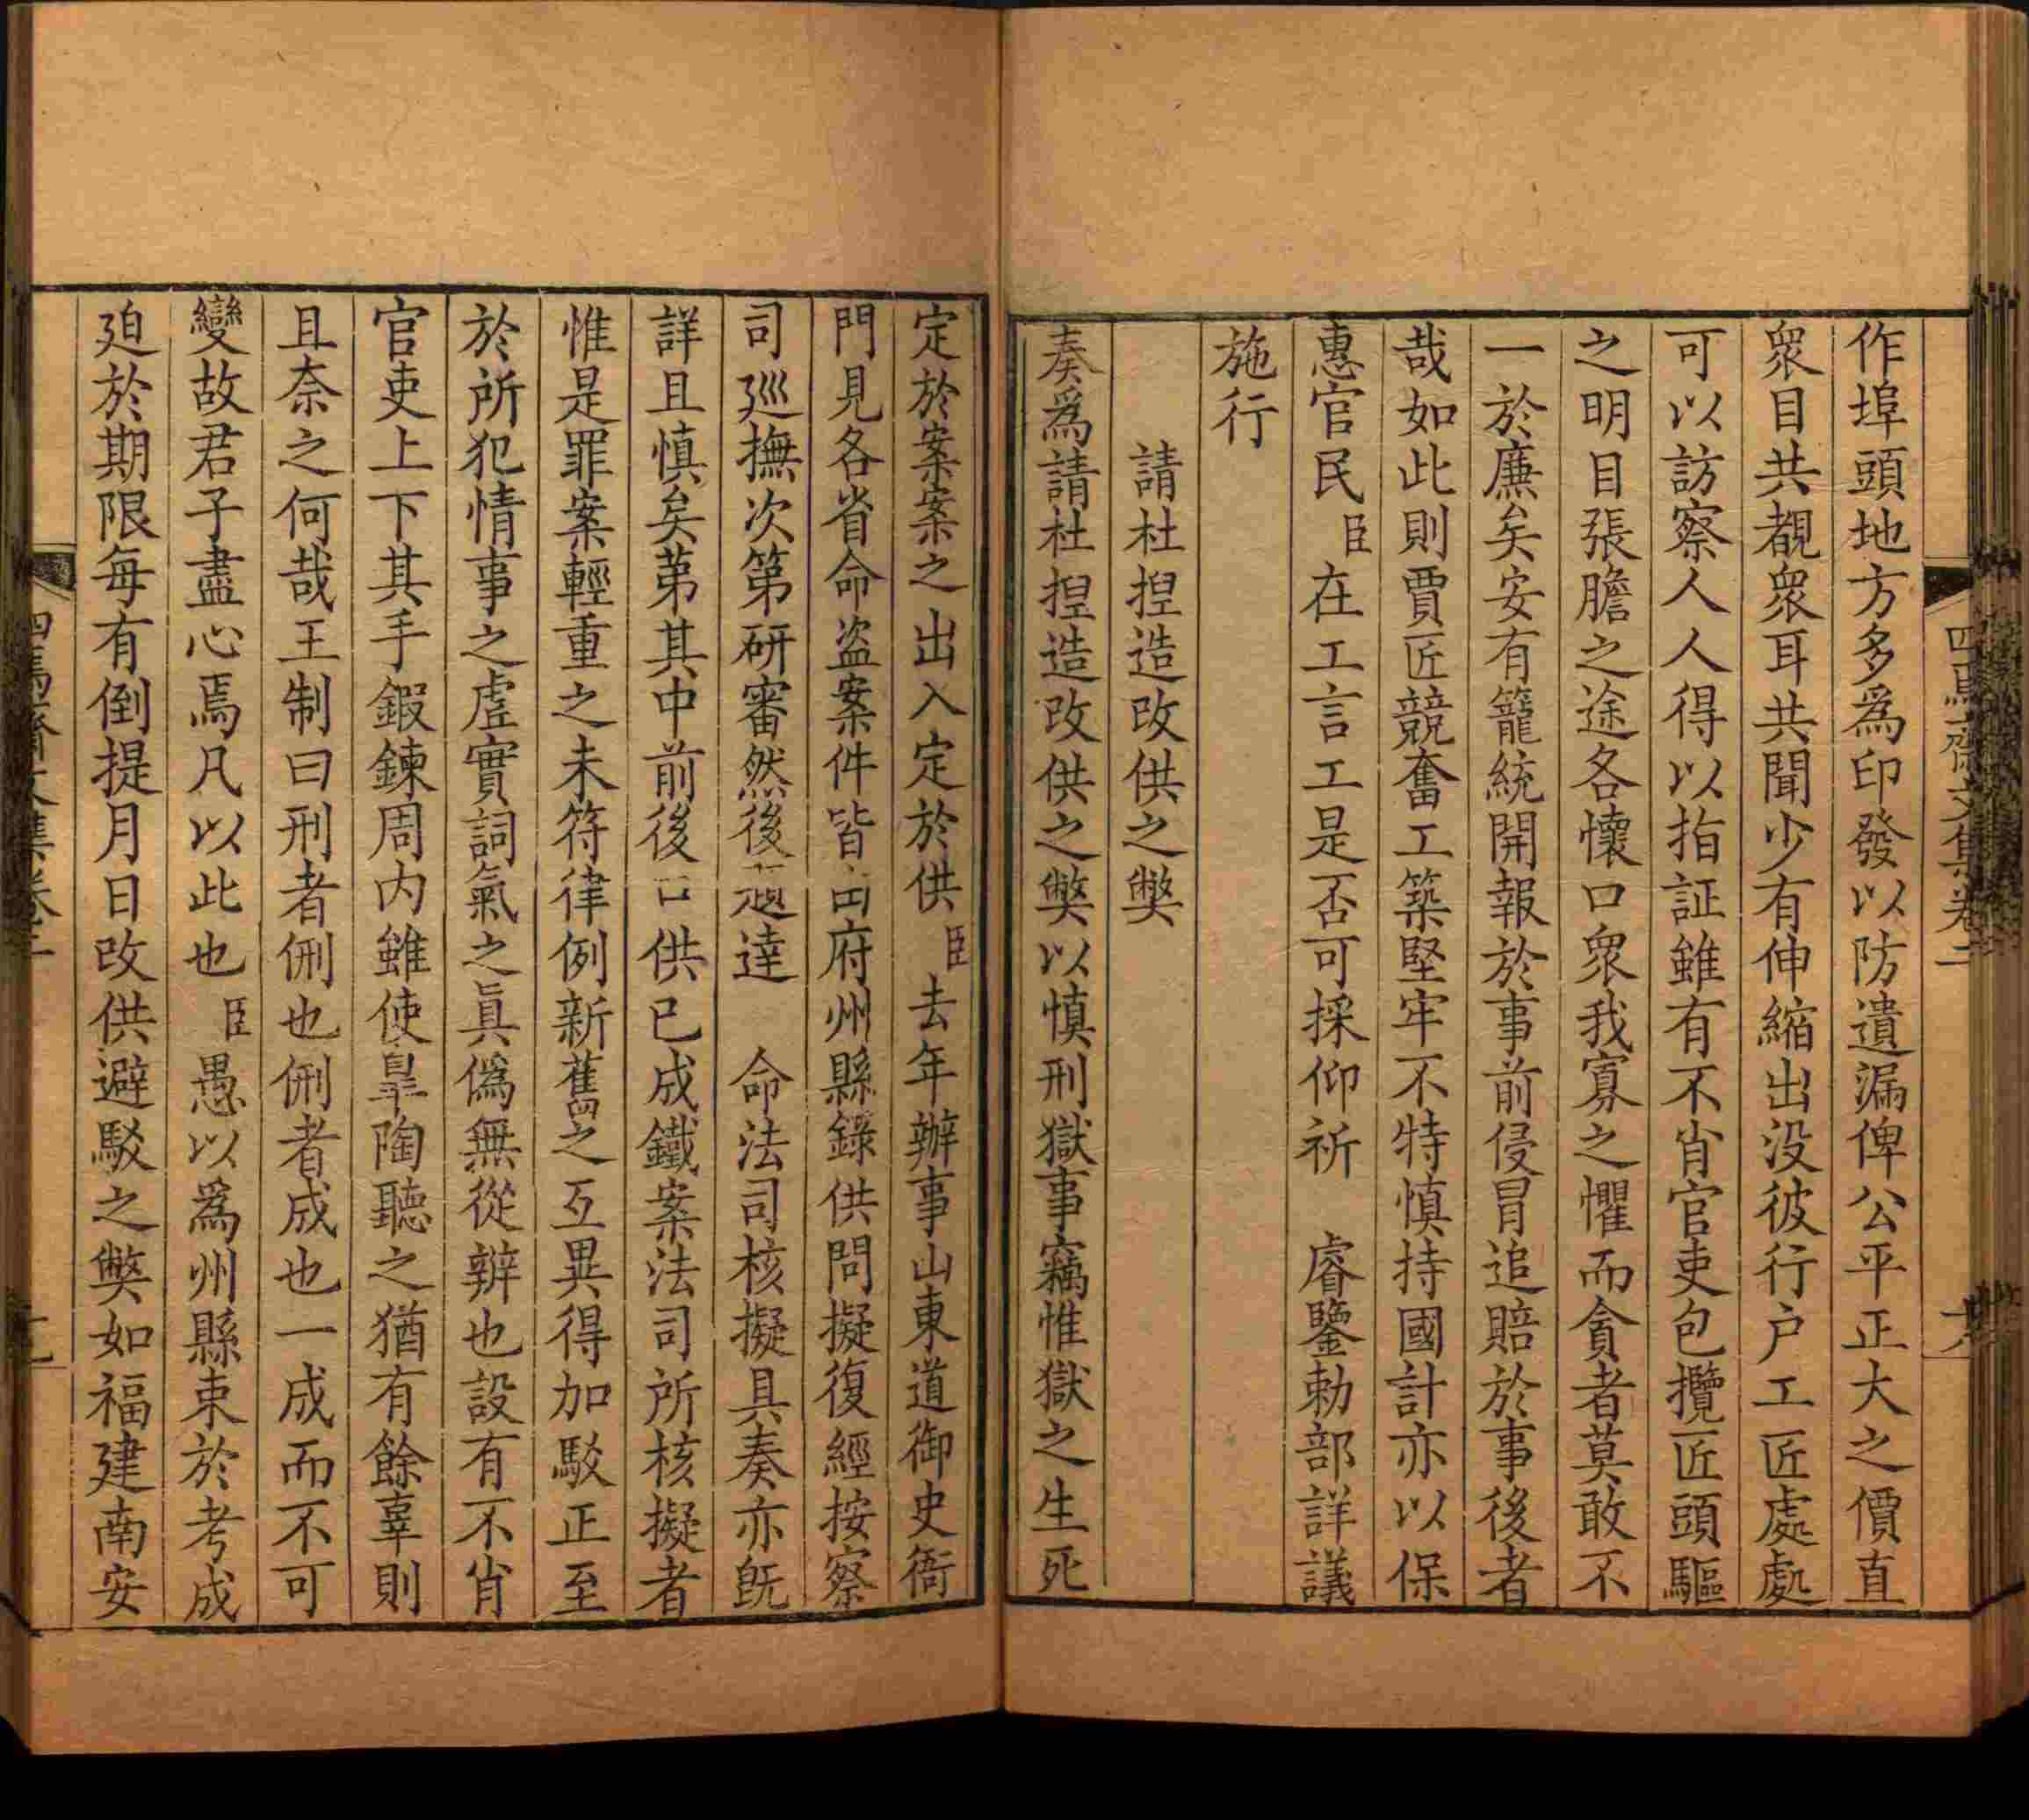 四馬齋文集卷二
作埠頭地方多爲印發以防遺漏俾公平正大之價直
衆目共覩衆耳共聞少有伸縮出没彼行户工匠處處
可以訪察人人得以指証雖有不肖官吏包攬匠頭驅
之明目張膽之途各懷口衆我寡之懼而貪者莫敢不
一於廉矣安有籠統開報於事前侵冒追賠於事後者
哉如此則賈匠競奮工築堅牢不特慎持國計亦以保
惠官民臣在工言工是否可採仰祈 睿鑒勅部詳議
施行
請杜揑造改供之獘
奏爲請杜揑造改供之獘以慎刑獄事竊惟獄之生死
定於案案之出入定於供臣去年辦事山東道御史衙
門見各省命盗案件皆由府州縣錄供問擬復經按察
司廵撫次第研審然後題達 命法司核擬具奏亦旣
詳且慎矣苐其中前後口供已成鐵案法司所核擬者
惟是罪案輕重之未符律例新舊之互異得加駁正至
於所犯情事之虚實詞氣之眞偽無從辨也設有不肖
官吏上下其手鍜鍊周内雖使臯陶聽之猶有餘辜則
且奈之何哉王制曰刑者侀也侀者成也一成而不可
變故君子盡心焉凡以此也臣愚以爲州縣束於考成
廹於期限每有倒提月日改供避駁之獘如福建南安
四馬齋文集卷二